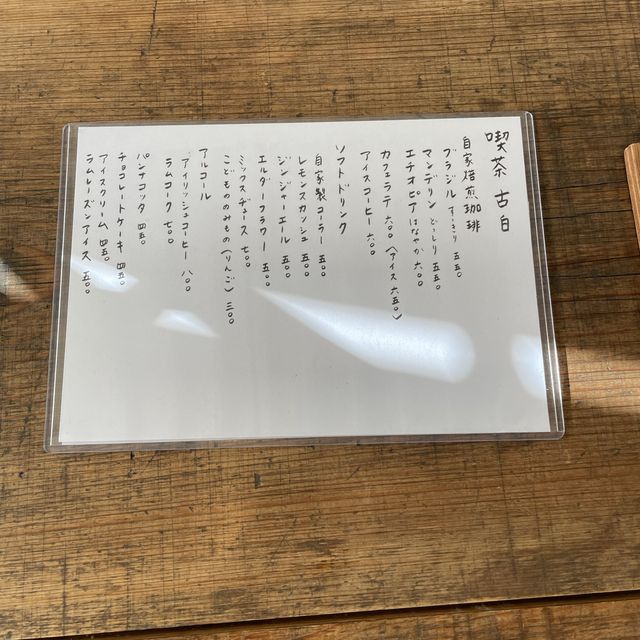 喫茶 古白
自家焙煎珈琲
ブラジル すっきり 五五〇
マンデリン どっしり 五五〇
エチオピア はなやか 六〇〇
カフェラテ 六〇〇 (アイス 六五〇)
アイスコーヒー 六〇〇
ソフトドリンク
自家製コーラー 五〇〇
レモンスカッシュ 五〇〇
ジンジャーエール 五〇〇
エルダーフラワー 五〇〇
ミックスヂュース 七〇〇
こどもののみもの (りんご) 三〇〇
アルコール
アイリッシュコーヒー 八〇〇
ラムコーク 七〇〇
パンナコッタ 四五〇
チョコレートケーキ 四五〇
アイスクリーム 四五〇
ラムレーズンアイス 五〇〇